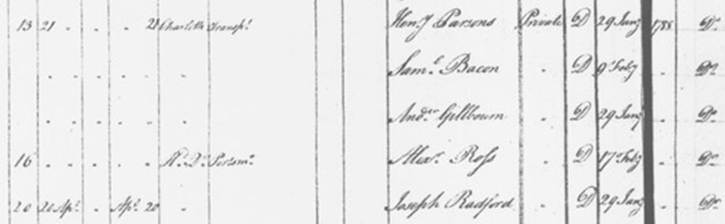 13 21 " " " 21 Charlotte Transpt Heny Parsons Private D 29 Jany 1788 Do
" " " " " " Saml Bacon " D 9 Feby " Do
" " " " " " Andw Gillbourn " D 29 Jany " Do
16 " " " " " Portsmo Alexr Ross " D 17 Feby " Do
20 20 Apl " Apl 20 " Joseph Radford " D 29 Jany " Do